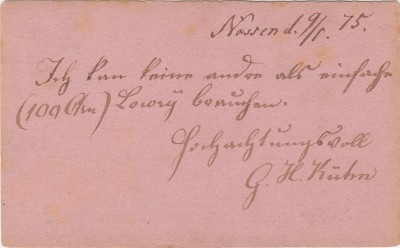 Nossen d. 9/5. 75.
Ich kan keine andre als einfache
(100 Ctn) Lowry brauchen.
Hochachtungsvoll
G. H. Kühn